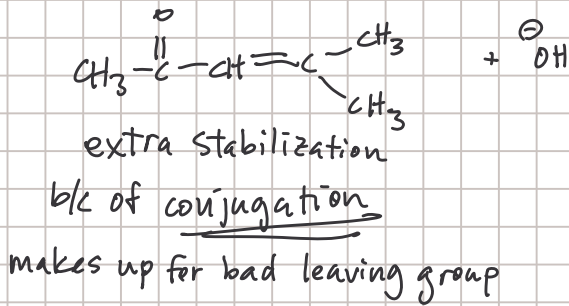 O
CH3-C-CH=C-CH3 + ⊖OH
CH3
extra stabilization
b/c of conjugation
makes up for bad leaving group